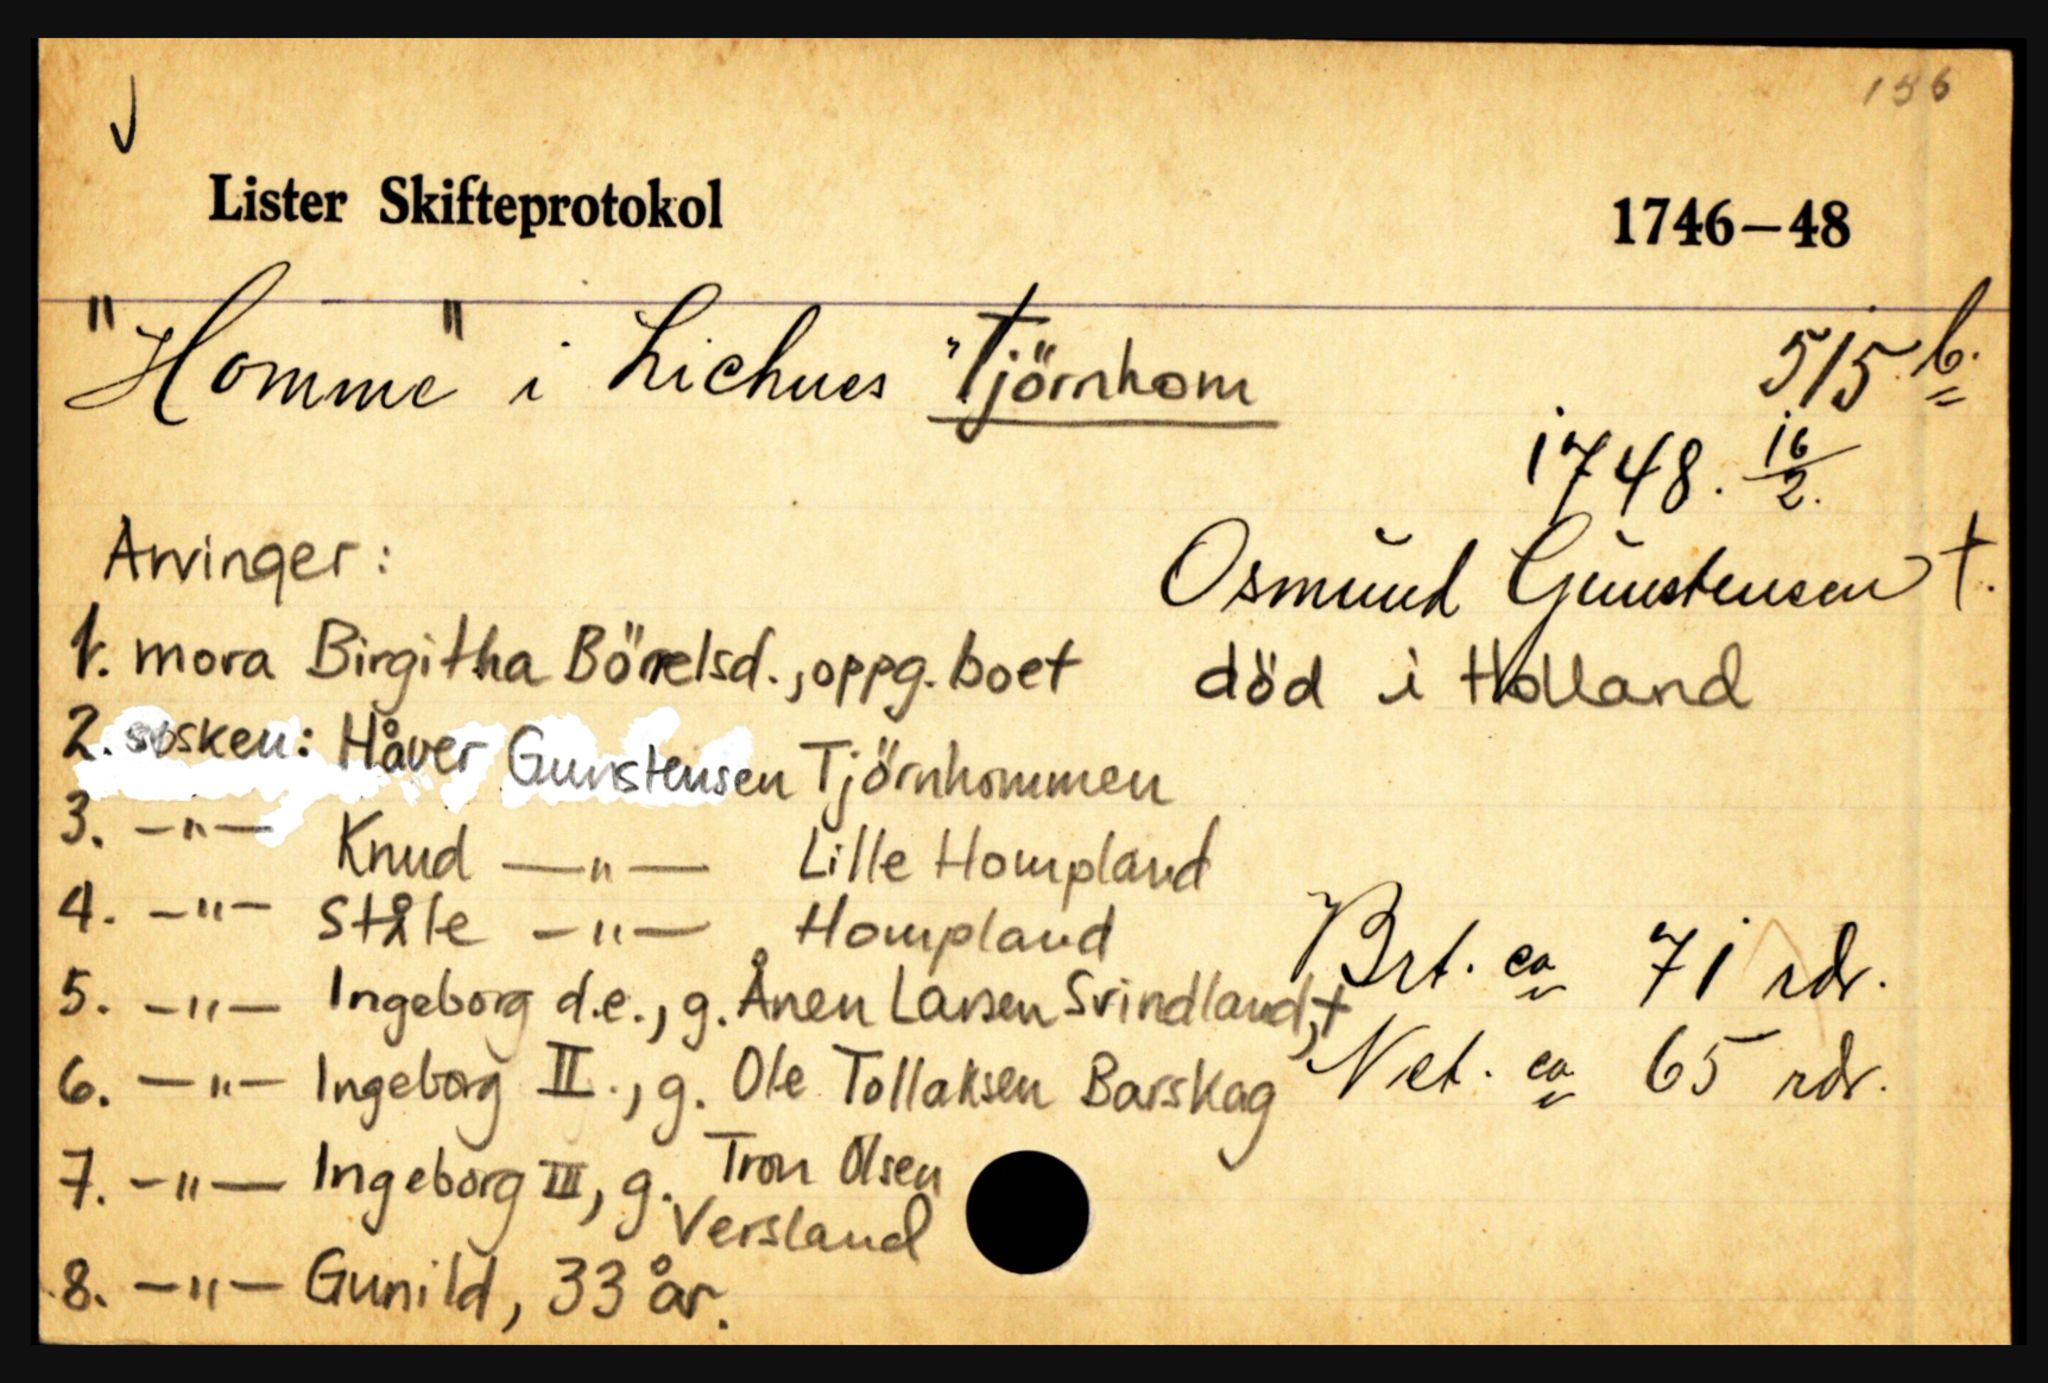 156
Lister Skifteprotokol 1746–48
"Homme" i Liehues "Tjörnhom
515 b.
1748. 16/2.
Osmund Gunstensen †.
död i Holland
Arvinger:
1. mora Birgitha Börrelsd., oppg. boet
2. søsken: Håver Gunstensen Tjörnhommen
3. —"— Knud —"— Lille Hompland
4. —"— Ståle —"— Hompland
5. —"— Ingeborg d.e., g. Ånen Larsen Svindland, †
6. —"— Ingeborg II., g. Ole Tollaksen Barskag
7. —"— Ingeborg III, g. Tron Olsen
Versland
8. —"— Gunild, 33 år.
Brt. ca 71 rdr.
Net. ca 65 rdr.